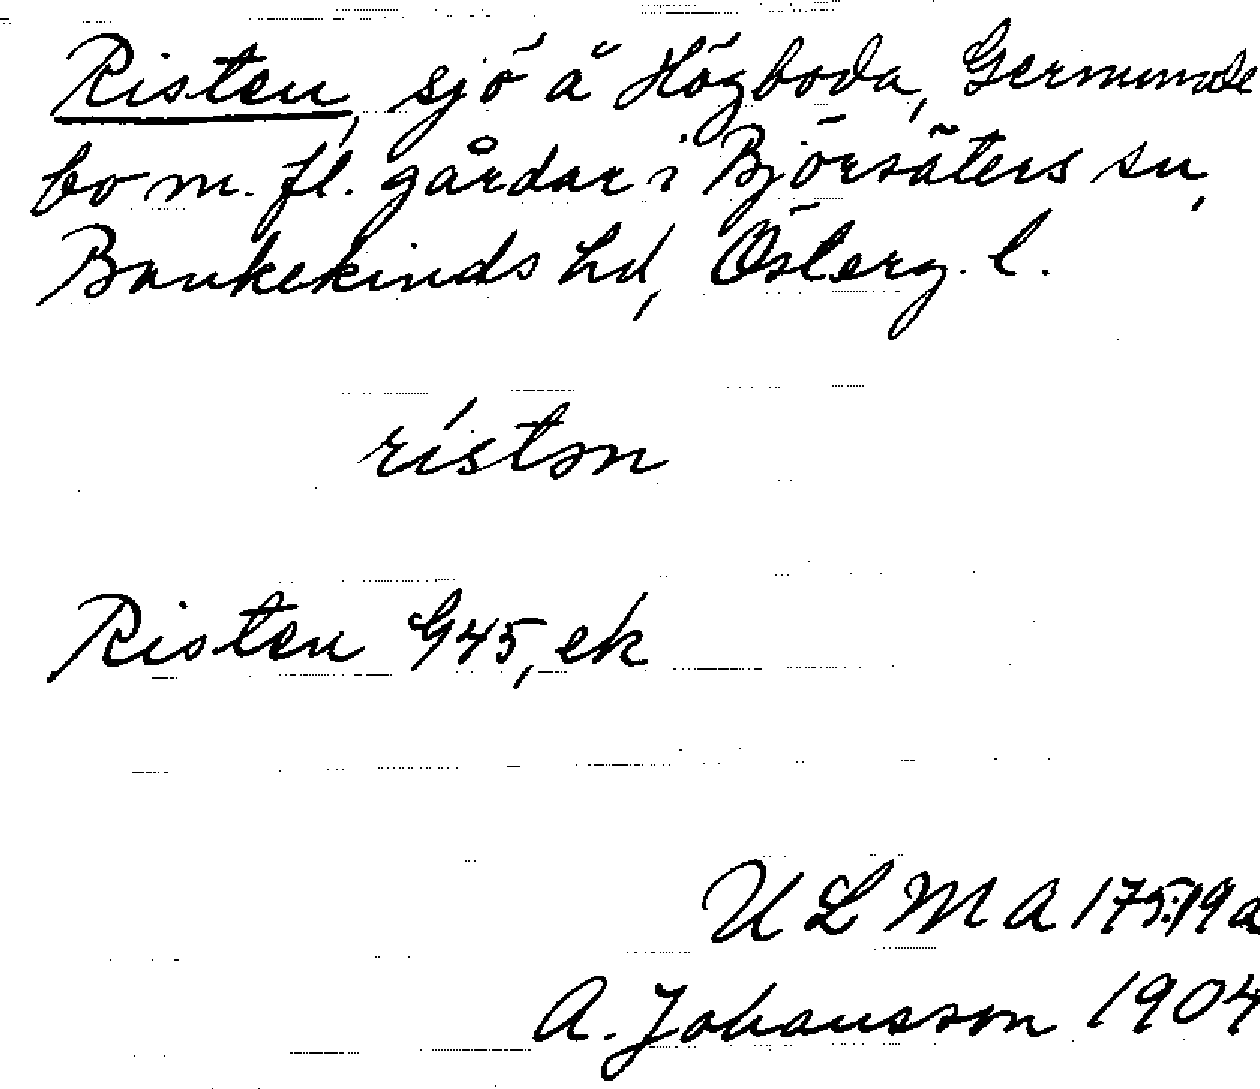 Risten, sjö å Högboda, Germunde
bo m. fl. gårdar i Björsäters sn,
Bankekinds hd, Österg. l.
ristən
Risten G45, ek
U L M A 175:19a
A. Johansson 1904